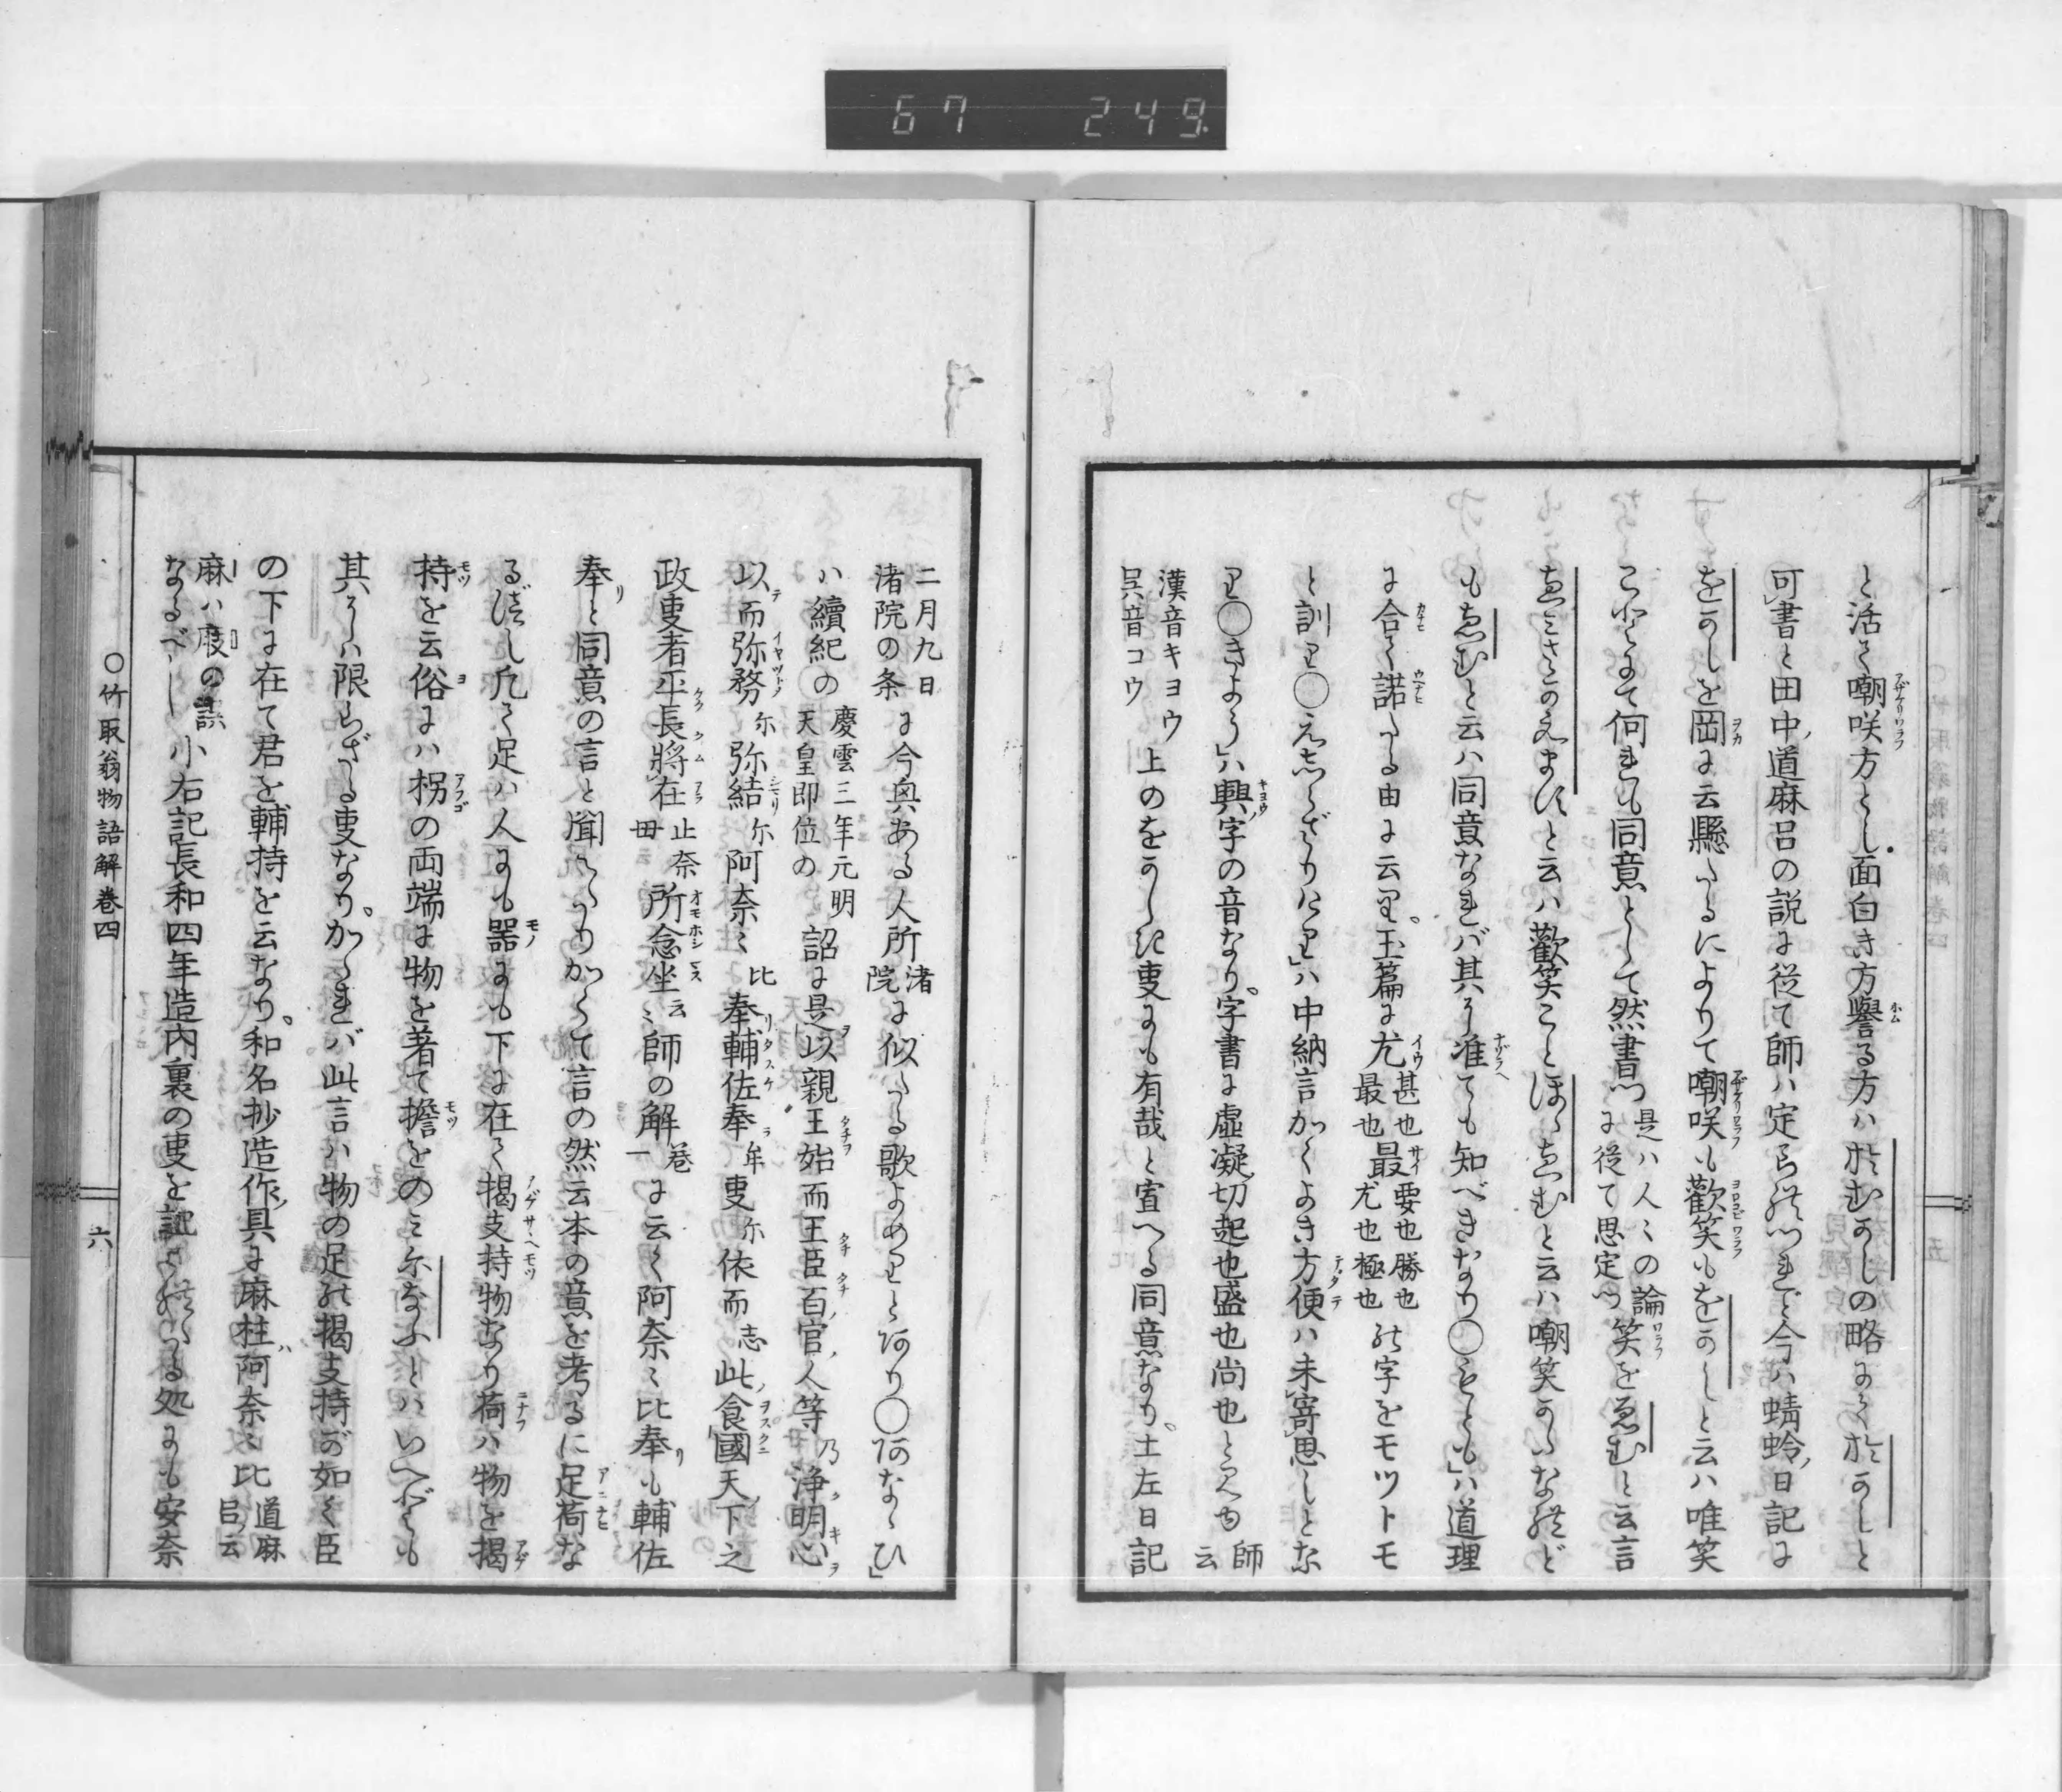 67 249
と活く嘲咲方とし面白き方譽る方ハ於むかしの略にて於かしと
可書と田中道麻呂の説に従て師ハ定られつれど今ハ蜻蛉日記に
をかしを岡に云懸たるによりて嘲咲も歡笑もをかしと云ハ唯笑
こゝろにて何れも同意として然書つ是ハ人〻の論に従て思定つ笑をゑむと云言
ゑミさかえまけと云ハ歡笑ことほゝゑむと云ハ嘲笑かたなれど
もゑむと云ハ同意なれバ其に准ても知べきなり〇もとも」ハ道理
に合て諾たる由に云り。玉篇に尤甚也最也最要也勝也尤也極也の字をモツトモ
と訓り〇えあらざりけり」ハ中納言かくよき方便ハ未寄思しとな
り〇きよう」ハ興字の音なり。字書に虚凝切起也盛也尚也とみゆ師云
漢音キヨウ呉音コウ上のをかしき叓にも有哉と宣へる同意なり。土左日記
二月九日渚院の条に今興ある人所渚院に似たる歌よめりとあり〇あなゝひ」
ハ續紀の慶雲三年元明天皇即位の詔に是以親王始而王臣百官人等乃浄明心
以而弥務尓弥結尓阿奈〻比奉輔佐奉牟叓尓依而志此食國天下之
政叓者平長將在止奈毋所念坐云〻師の解巻一に云く阿奈〻比奉も輔佐
奉と同意の言と聞えたりかくて言の然云本の意を考るに足荷な
るべし凡て足ハ人にも器にも下に在て揭支持物なり荷ハ物を揭
持を云俗にハ枴の両端に物を著て擔をのミになふとハいへども
其にハ限らざる叓なり。かゝれバ此言ハ物の足の揭支持が如く臣
の下に在て君を輔持を云なり。和名抄造作具に麻柱阿奈〻比道麻呂云
麻ハ㡯の誤なるべし小右記長和四年造内裏の叓を記されたる処にも安奈
〇竹取翁物語解巻四
六